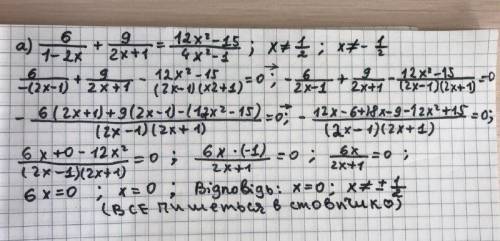 а) 6/(1-2x) + 9/(2x+1) = (12x²-15)/(4x²-1) ; x≠1/2 ; x≠-1/2
6/(-(2x-1)) + 9/(2x+1) - (12x²-15)/((2x-1)(x2+1)) =0 ; -6/(2x-1) + 9/(2x+1) - (12x²-15)/((2x-1)(2x+1)) =0
- (6(2x+1)+9(2x-1)-(12x²-15))/((2x-1)(2x+1)) =0; - (12x-6+18x-9-12x²+15)/((2x-1)(2x+1)) =0;
(6x+0-12x²)/((2x-1)(2x+1)) =0 ; (6x·(-1))/(2x+1) =0 ; 6x/(2x+1) =0 ;
6x=0 ; x=0 ; Відповідь: x=0; x≠±1/2
(ВСЕ пишеться в стовпчик)